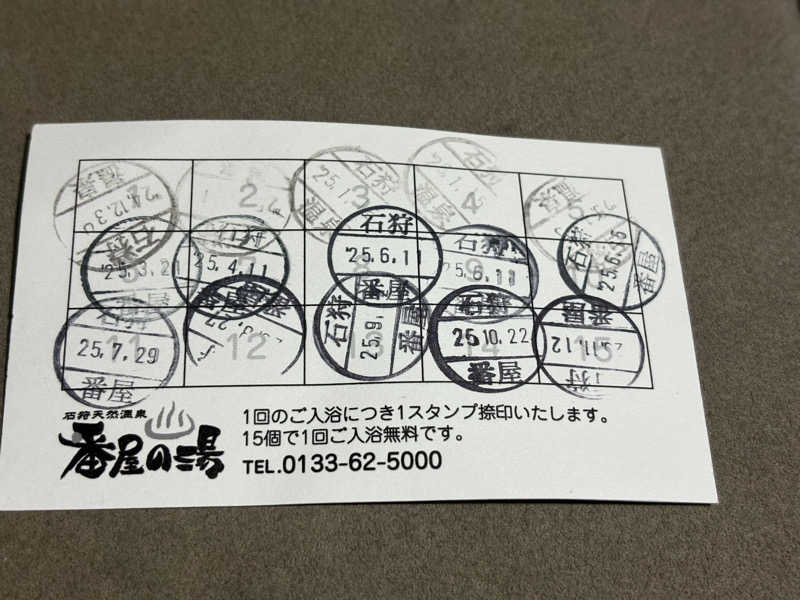 1 2 3 4 5
温泉 '24.12.3
石狩 25.1. 温泉
石狩 温泉
温泉
石狩 '25.3.21 番屋
石狩 25.4.11
石狩 '25.6.11 番屋
石狩 '25.6.11
石狩 番屋
11 12 13 14 15
石狩 25.7.29 番屋
石狩 25.9. 番屋
石狩 25 10.22 番屋
石狩天然温泉
番屋の湯
1回のご入浴につき1スタンプ捺印いたします。
15個で1回ご入浴無料です。
TEL.0133-62-5000